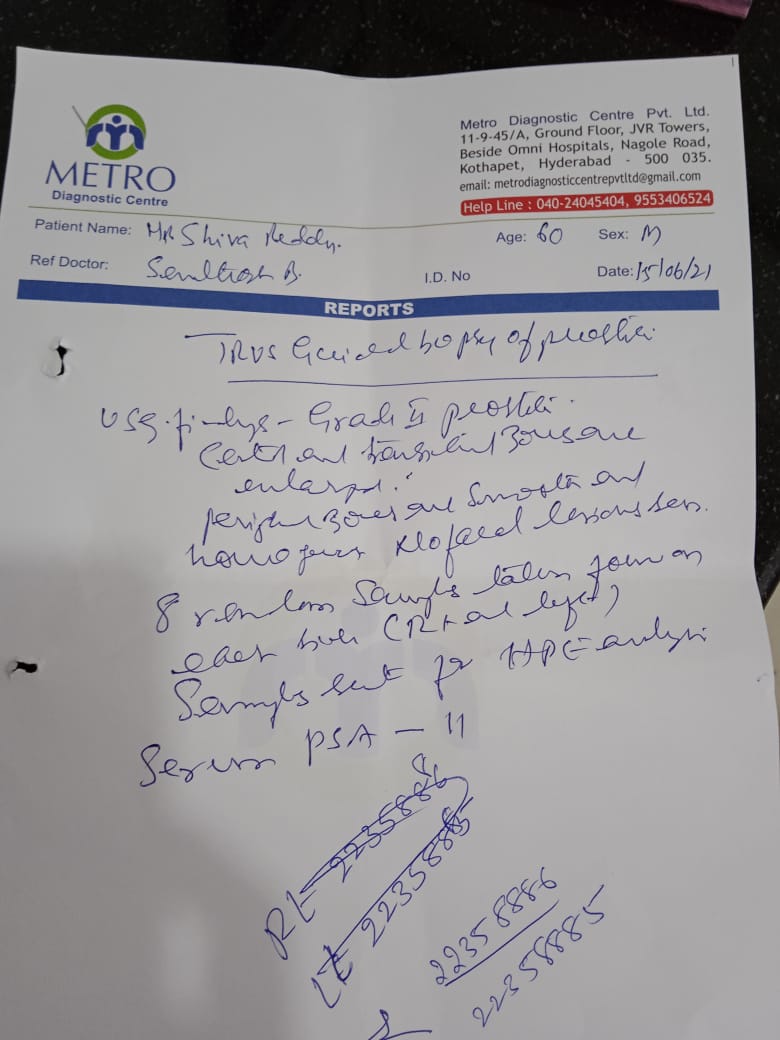 METRO
Diagnostic Centre
Metro Diagnostic Centre Pvt. Ltd.
11-9-45/A, Ground Floor, JVR Towers,
Beside Omni Hospitals, Nagole Road,
Kothapet, Hyderabad - 500 035.
email: metrodiagnosticcentrepvtltd@gmail.com
Help Line : 040-24045404, 9553406524
Patient Name: Mr Shiva Reddy. Age: 60 Sex: M
Ref Doctor: B. I.D. No Date: 15/06/21
REPORTS
TRUS Guided biopsy of prostate
USG. findings - Grade II prostate.
Central and transitional Zones are
enlarged.
peripheral Zones are smooth and
homogenous No focal lesions seen.
8 random samples taken from
each side (Rt and left)
Samples sent for HPE analysis
Serum PSA - 11
RL 22358886
LL 22358885
22358886
22358885